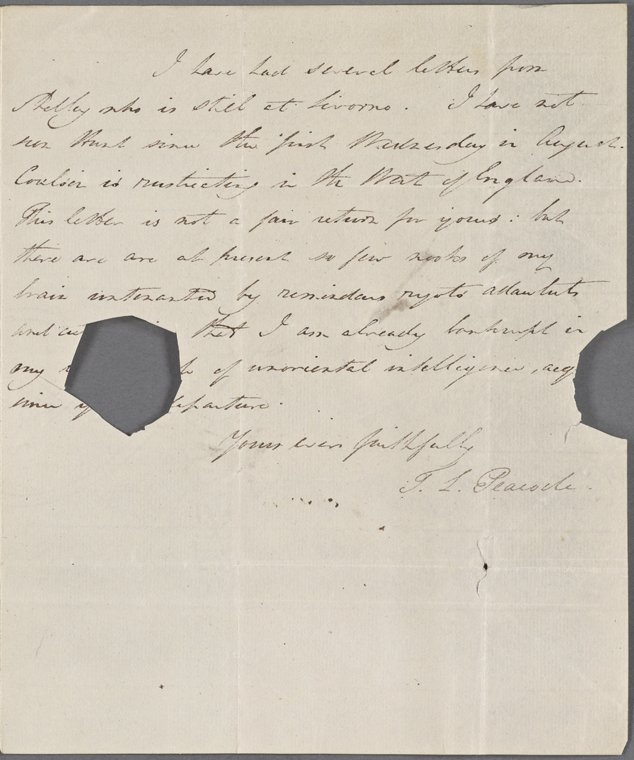 I have had several letters from
Shelley who is still at Livorno. I have not
seen Hunt since the first Wednesday in August.
Coulson is rusticating in the West of England.
This letter is not a fair return for yours: but
there are are at present so few nooks of my
brain untenanted by reminders ryots adawluts
and that I am already bankrupt in
my of unoriental intelligence, acq
since departure.
Yours ever faithfully
T. L. Peacock.